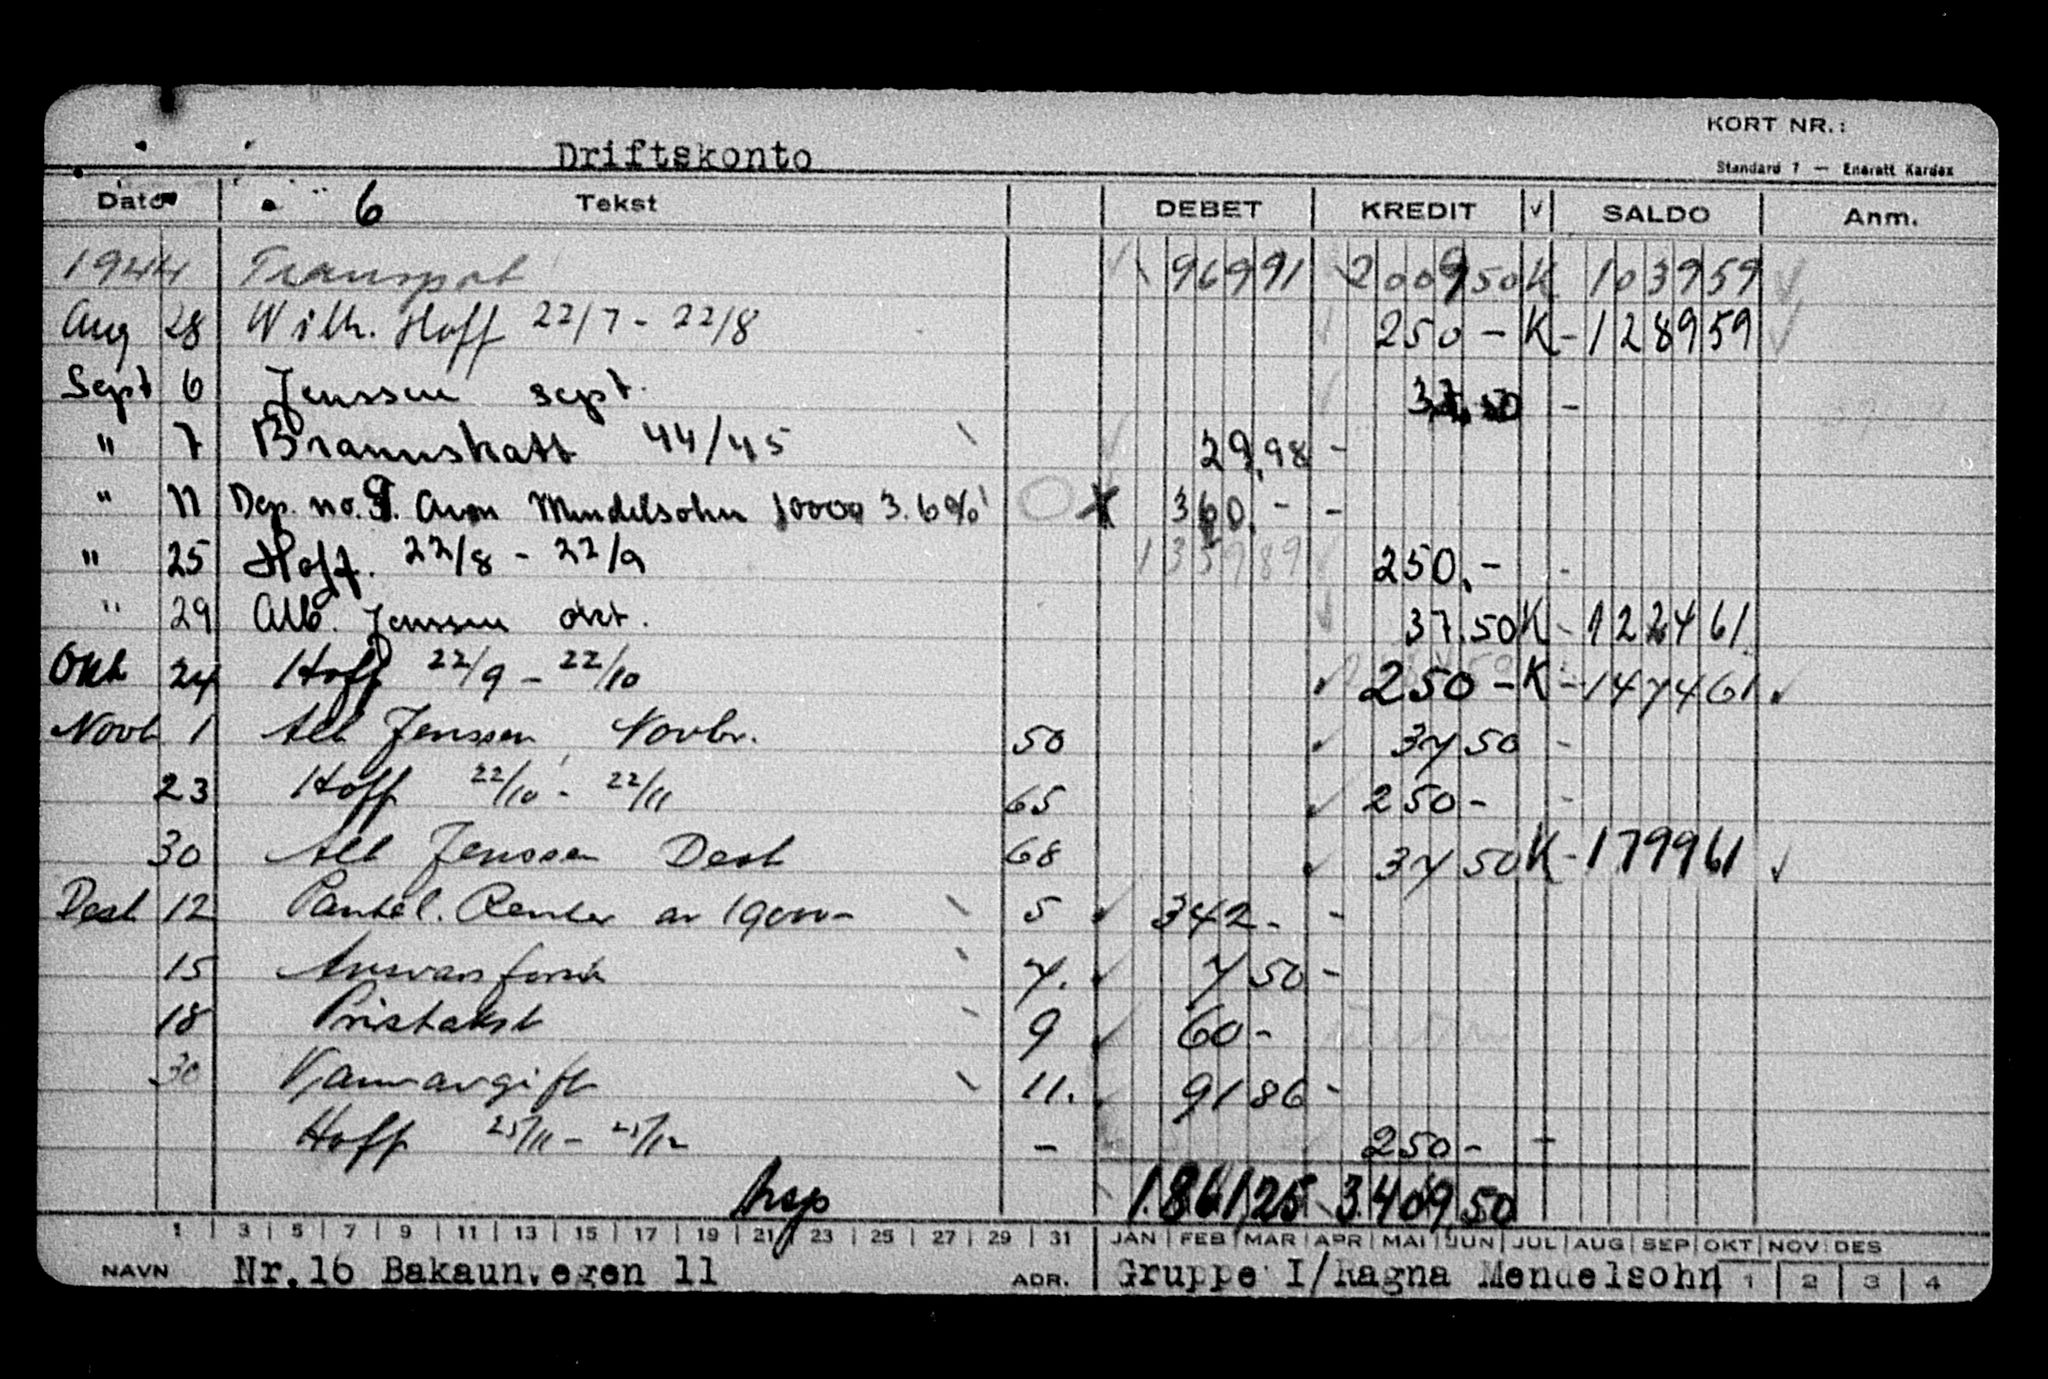 KORT NR.:
Driftskonto
Standard 7 — Eneratt Kardex
Dato 6 Tekst DEBET KREDIT √ SALDO Anm.
1944 Transport 969 91 2009 50 K 1039 59
Aug 28 Wilh. Hoff 22/7 - 22/8 250 - K - 1289 59
Sept 6 Jenssen sept. 37.50 -
" 7 Brannskatt 44/45 29,98 -
" 11 Dep. no. 9. Aron Mendelsohn 10000 3.6% 360,- -
" 25 Hoff. 22/8 - 22/9 1359 89 250,- -
" 29 Alb. Jenssen okt. 37.50 K - 1224 61
Okt 24 Hoff 22/9 - 22/10 250 - K - 1474 61
Novb 1 Alb Jenssen Novbr. 50 37 50 -
23 Hoff 22/10 - 22/11 65 250 - -
30 Alb Jenssen Desb 68 37 50 K - 1799 61
Desb 12 Pantel. Renter av 19000- 5 342 - -
15 Ansvarsforsik 7. 7 50 -
18 Pristakst 9 60 -
30 Vannavgift 11. 91 86 -
Hoff 25/11 - 25/12 - 250 - -
1.861,25 3.409,50
1 3 5 7 9 11 13 15 17 19 21 23 25 27 29 31 JAN FEB MAR APR MAI JUN JUL AUG SEP OKT NOV DES
NAVN Nr.16 Bakaunvegen 11 ADR. Gruppe I/Ragna Mendelsohn 1 2 3 4